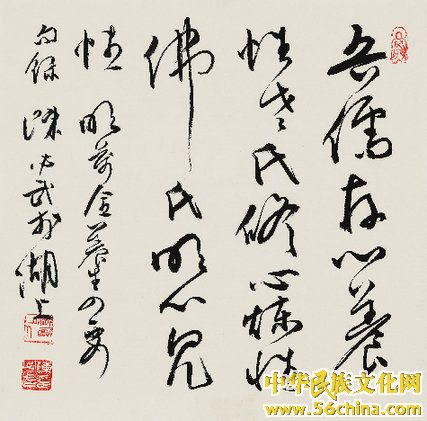 吾儒存心養
性老氏修心煉性
佛氏明心見
性 明萬全養生四要
句録 陳必武於湖上
中华民族文化网
www.56china.com